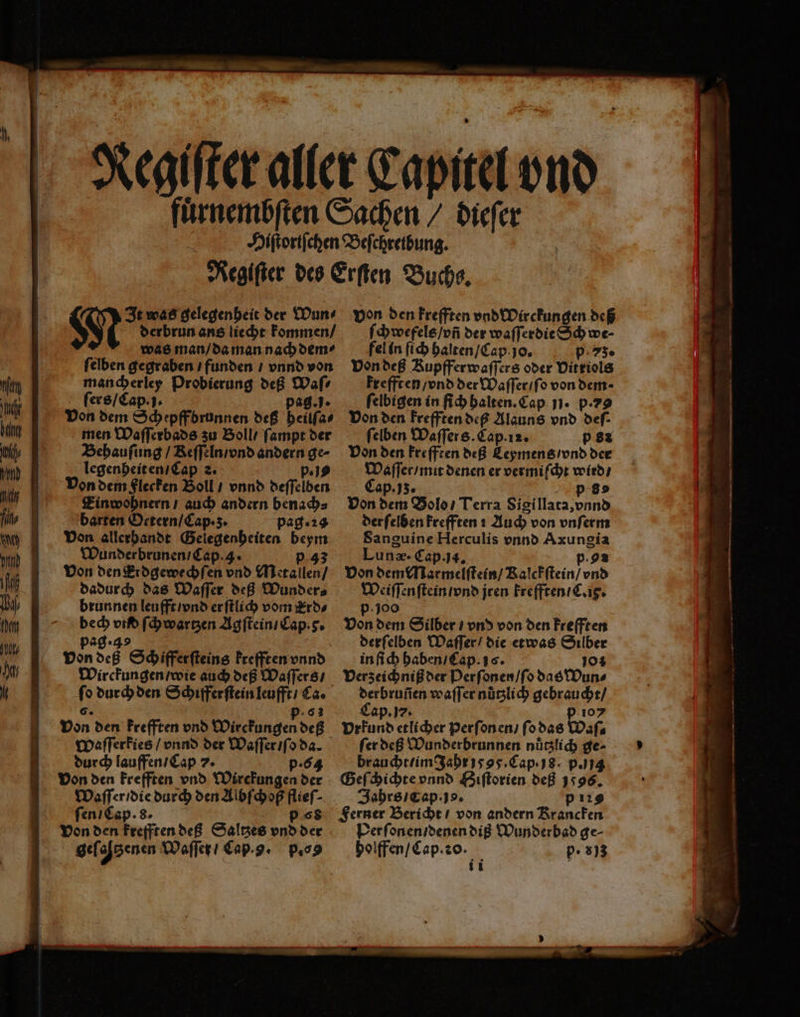 Regiſter aller Capitel vnd
fürnembſten Sachen / dieſer
Hiſtoriſchen Beſchreibung.
Regiſter des Erſten Buchs.
MIt was gelegenheit der Wun⸗
derbrun ans liecht kommen/
was man/da man nach dem⸗
ſelben gegraben / funden / vnnd von
mancherley Probierung deß Waſ⸗
ſers/Cap.1. pag.1.
Von dem Schepffbrunnen deß heilſa⸗
men Waſſerbads zu Boll/ ſampt der
Behauſung / Keſſeln/vnd andern ge-
legenheiten/Cap 2. p.19
Von dem Flecken Boll / vnnd deſſelben
Einwohnern / auch andern benach⸗
barten Oertern/Cap.3. pag.24
Von allerhandt Gelegenheiten beym
Wunderbrunen/Cap.4. p 43
Von den Erdgewechſen vnd Metallen/
dadurch das Waſſer deß Wunder⸗
brunnen leufft/vnd erſtlich vom Erd⸗
bech vnd ſchwartzen Agſtein/Cap.5.
pag.49
Von deß Schifferſteins krefften vnnd
Wirckungen/wie auch deß Waſſers/
ſo durch den Schifferſtein leufft/ Ca.
6. p.63
Von den krefften vnd Wirckungen deß
Waſſerkies / vnnd der Waſſer/ſo da-
durch lauffen/Cap 7. p.64
Von den krefften vnd Wirckungen der
Waſſer/die durch den Albſchoß flieſ-
ſen/Cap.8. p 68
Von den krefften deß Saltzes vnd der
geſaltzenen Waſſer/ Cap.9. p.69
Von den krefften vnd Wirckungen deß
ſchwefels/vñ der waſſer die Schwe-
fel in ſich halten/Cap.10. p.73.
Von deß Kupfferwaſſers oder Vitriols
krefften/vnd der Waſſer/ſo von dem-
ſelbigen in ſich halten.Cap 11. p.79
Von den krefften deß Alauns vnd deſ-
ſelben Waſſers.Cap.12. p 82
Von den krefften deß Leymens/vnd der
Waſſer/mit denen er vermiſcht wird/
Cap.13. p 89
Von dem Bolo / Terra Sigillata,vnnd
derſelben krefften : Auch von vnſerm
Sanguine Herculis vnnd Axungia
Lunæ. Cap.14. p.92
Von dem Marmelſtein/ Kalckſtein/ vnd
Weiſſenſtein/vnd jren krefften/C.15.
p.100
Von dem Silber / vnd von den krefften
derſelben Waſſer/ die etwas Silber
in ſich haben/Cap.16. 103
Verzeichniß der Perſonen/ſo das Wun⸗
derbruñen waſſer nützlich gebraucht/
Cap.17. p 107
Vrkund etlicher Perſonen/ ſo das Waſ⸗
ſer deß Wunderbrunnen nützlich ge-
braucht/im Jahr 1595.Cap.18. p.114
Geſchichte vnnd Hiſtorien deß 1596.
Jahrs/Cap.19. p 129
Ferner Bericht / von andern Krancken
Perſonen/denen diß Wunderbad ge-
holffen/Cap.20. p. 813
ii